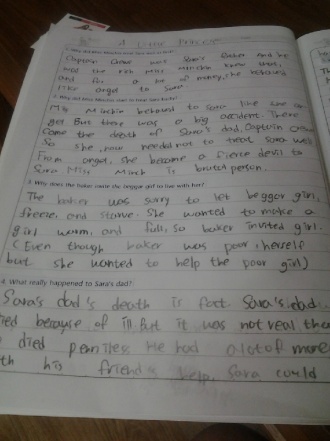 A Little Princess
Captain Crewe was Sara's father and he
was rich Miss Minchin knew that,
and for a lot of money, she behaved
like angel to Sara
Ms Minchin behaved to Sara like
But there was a big accident. There
Come the death of Sara's dad, Captain
So she now needed not to treat Sara well
From angel, she became a fierce devil to
Sara Miss Minch is brutal person.
3. Why does the baker invite the beggar girl to live with her?
The baker was sorry to let beggar girl,
freeze, and starve. She wanted to make a
girl warm, and full, so baker invited girl.
(Even though baker was poor, herself
but she wanted to help the poor girl)
4. What really happened to Sara's dad?
Sara's dad's death is fact. Sara's dad
died because of ill. But it was not real tha
died penniless. He had a lot of mone
th his friend's help. Sara could